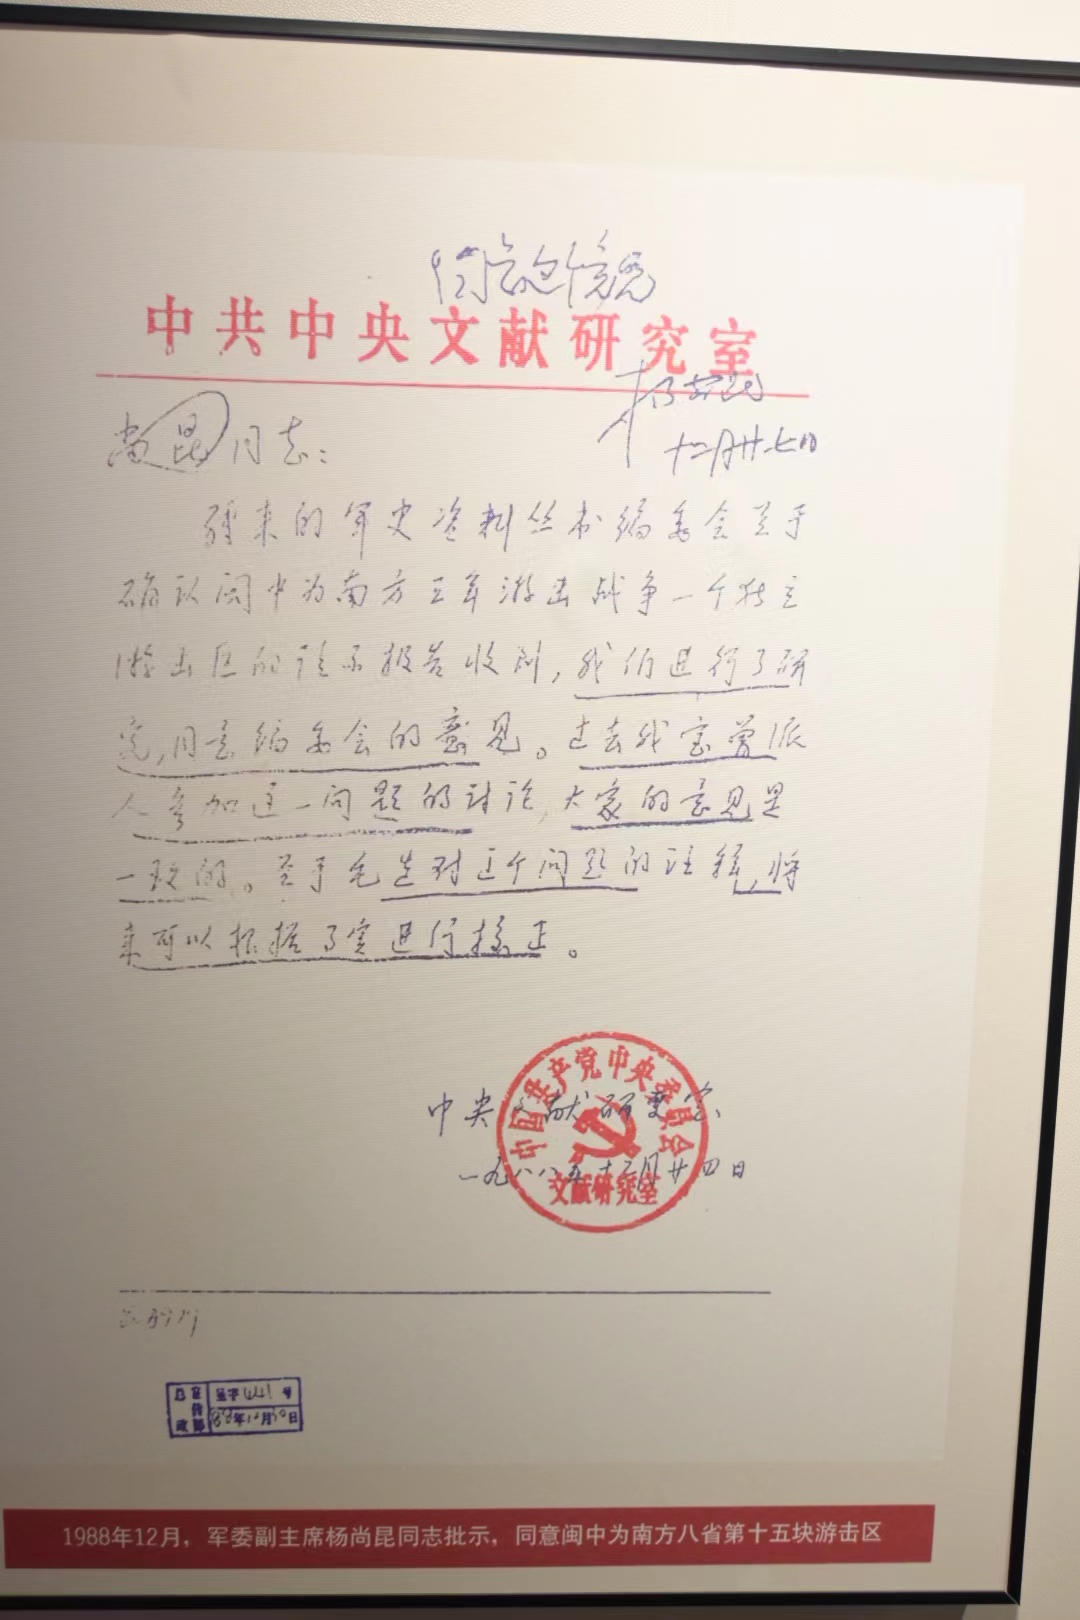 同意这个意见
中共中央文献研究室
杨尚昆
十二月廿七日
尚昆同志：
转来的军史资料丛书编委会关于
确认闽中为南方三年游击战争一个独立
游击区的请示报告收到，我们进行了研
究，同意编委会的意见。过去我室曾派
人参加这一问题的讨论，大家的意见是
一致的。至于毛选对这个问题的注释，将
来可以根据事实进行校正。
中央文献研究室
一九八八年十二月廿四日
中国共产党中央委员会
文献研究室
88年12月30日
1988年12月，军委副主席杨尚昆同志批示，同意闽中为南方八省第十五块游击区